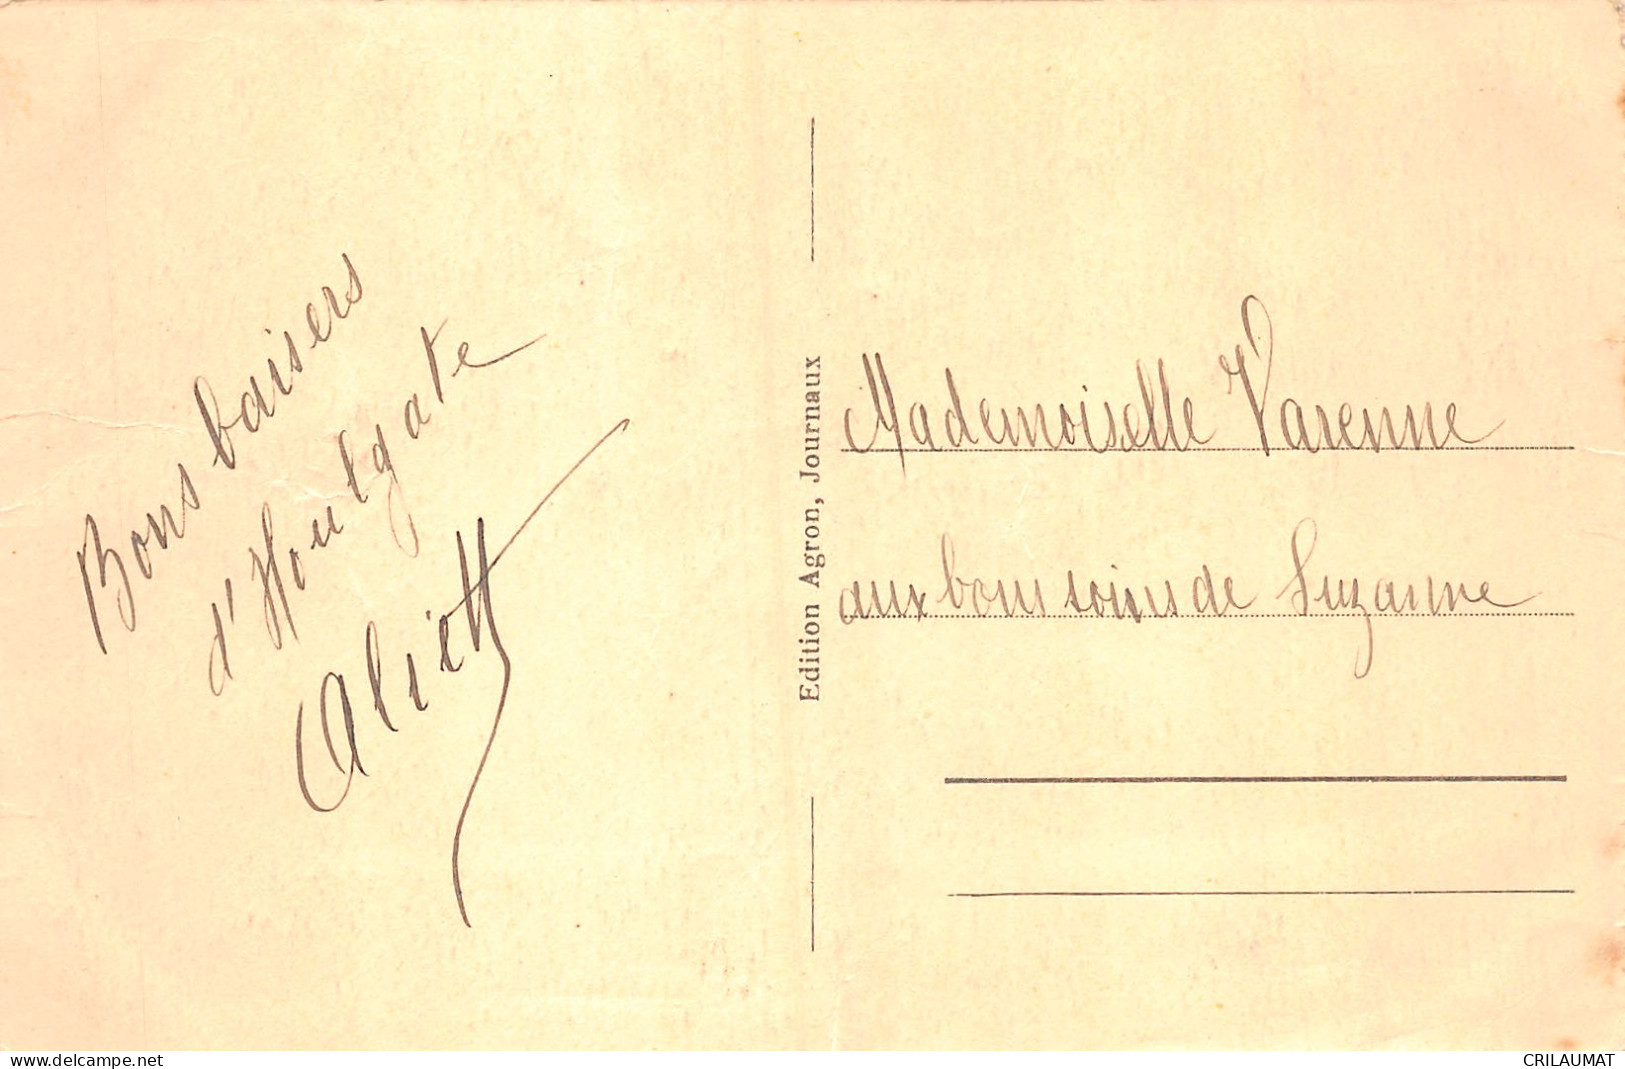 Bons baisers
d'Houlgate
Aliett
Edition Agron, Journaux
Mademoiselle Varenne
aux bons soins de Suzanne
www.delcampe.net
CRILAUMAT